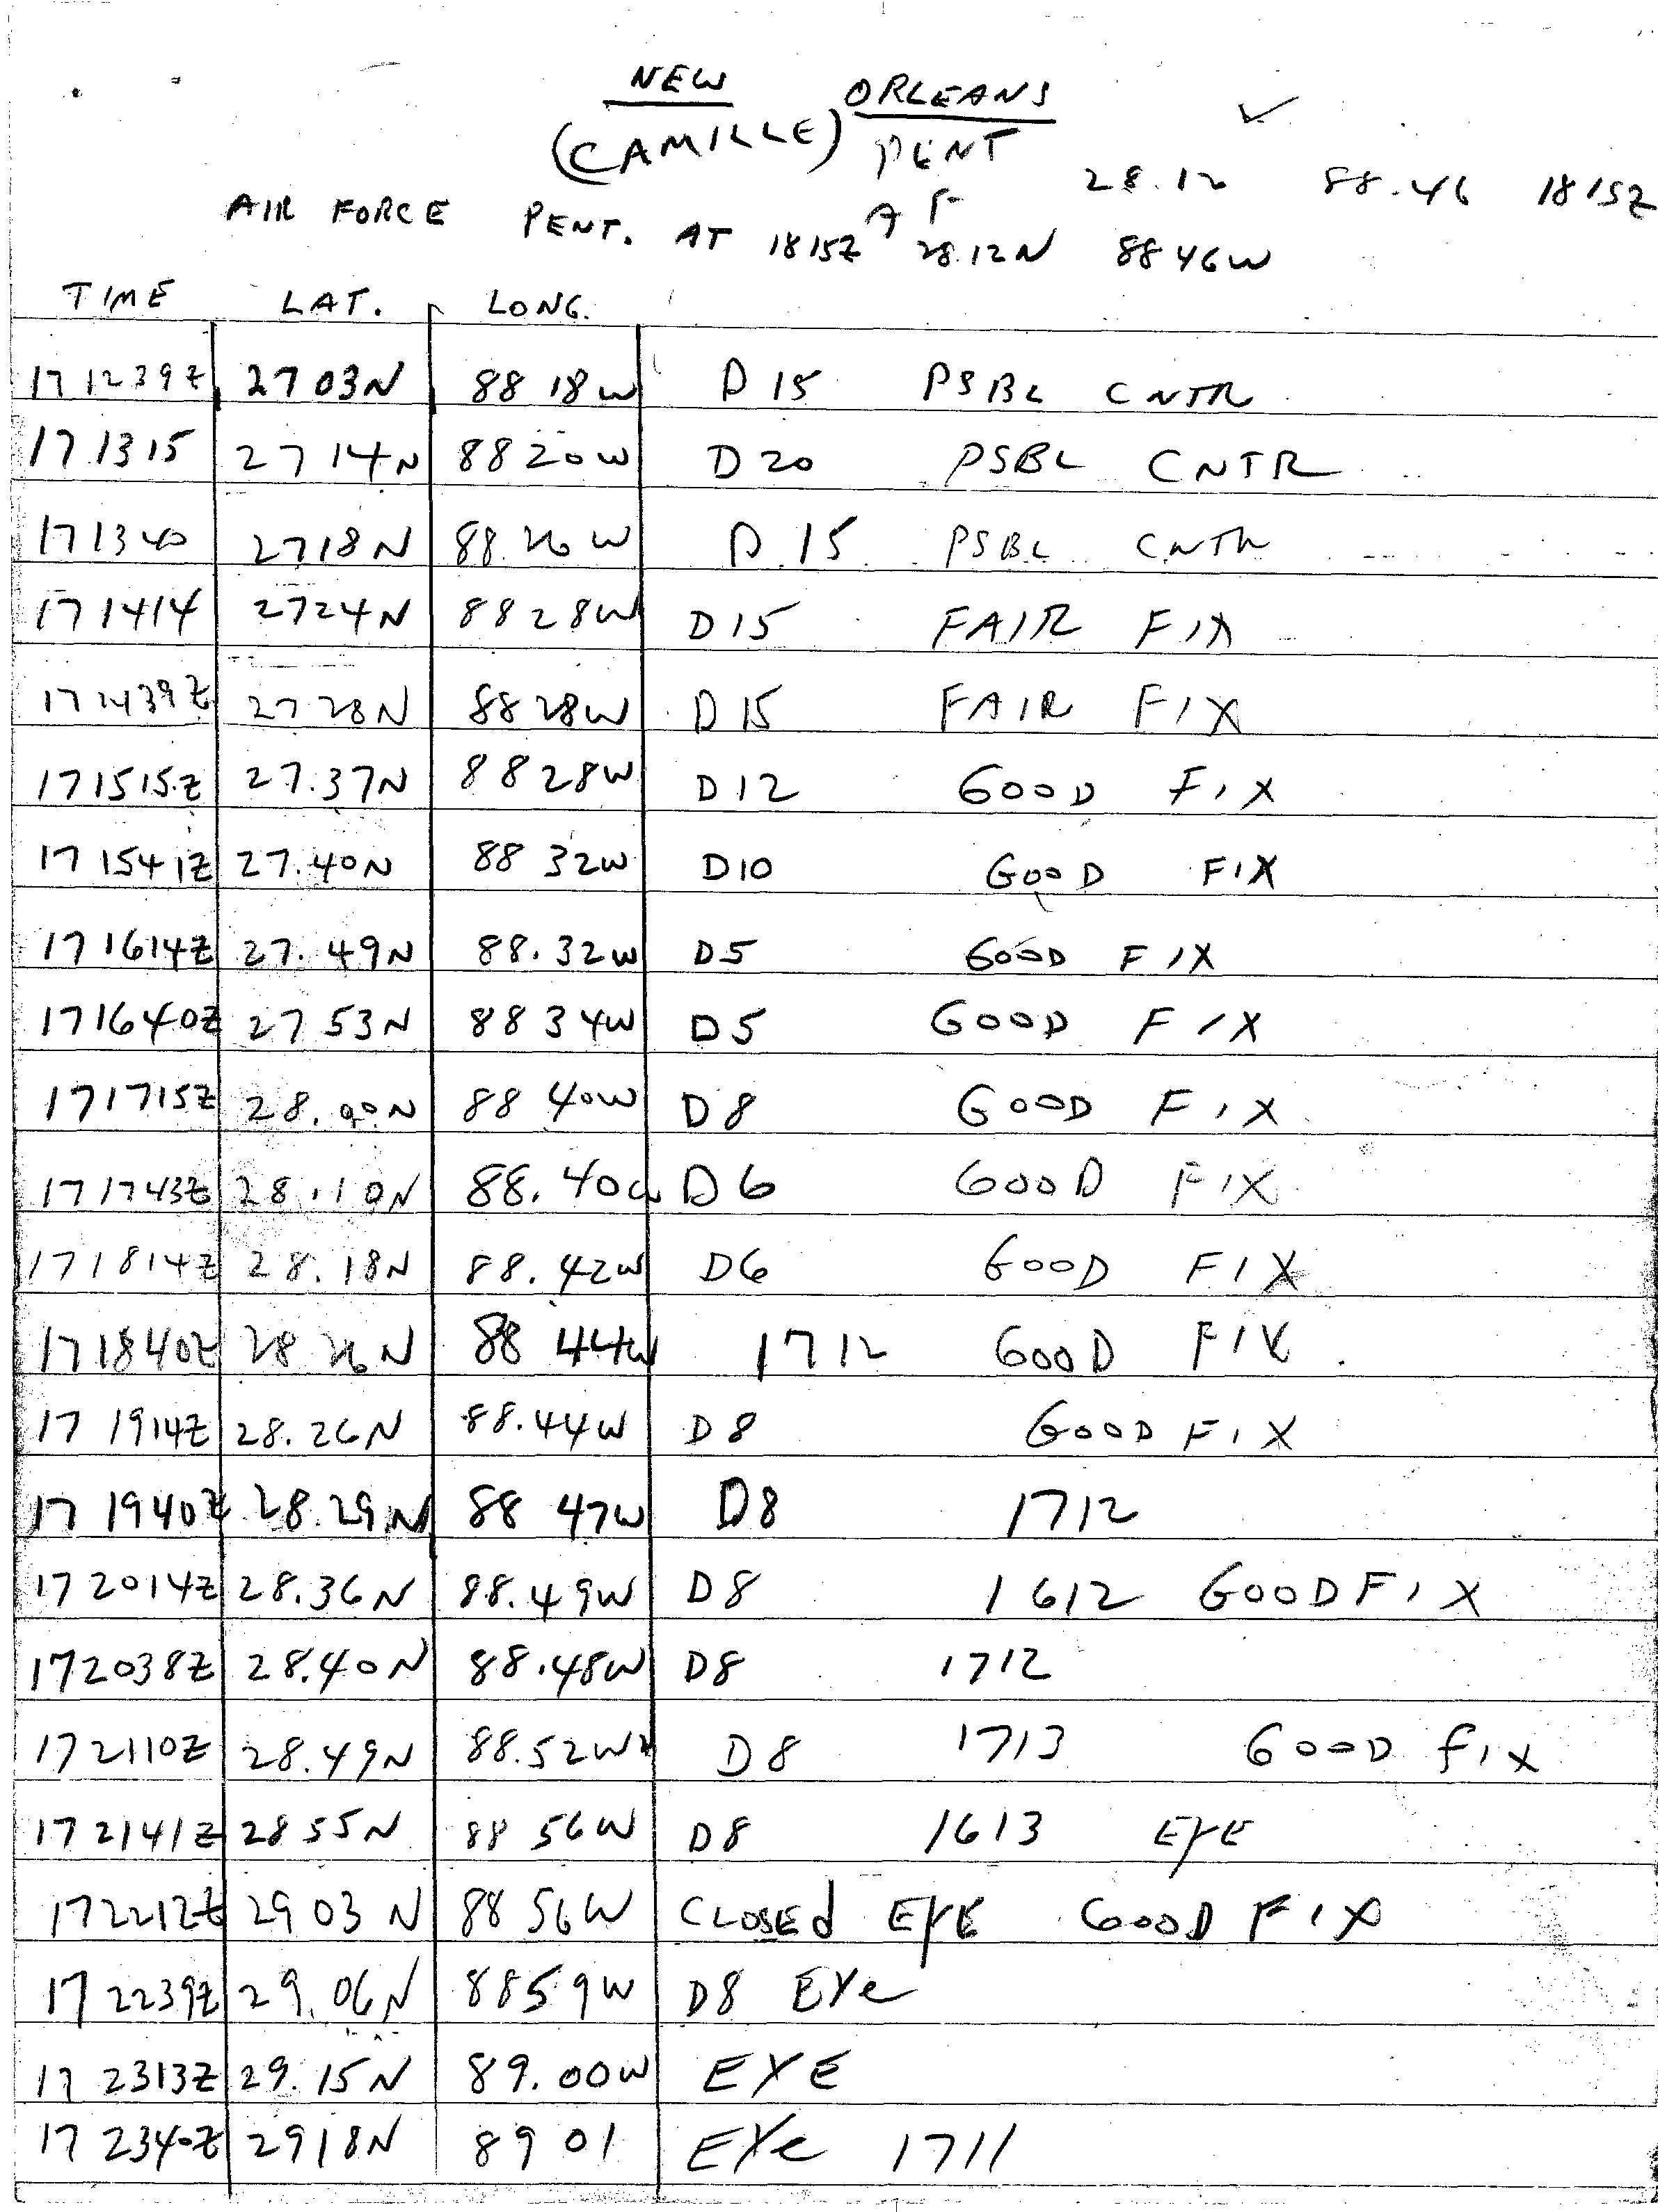 NEW ORLEANS
(CAMILLE) PENT
28.12 88.46 1815Z
AIR FORCE PENT. AT 1815Z AF 28.12N 8846W
TIME LAT. LONG.
171239Z 2703N 8818W D15 PSBL CNTR
171315 2714N 8820W D20 PSBL CNTR
171340 2718N 88.26W D15 PSBL CNTR
171414 2724N 8828W D15 FAIR FIX
171439Z 2728N 8828W D15 FAIR FIX
171515Z 27.37N 8828W D12 GOOD FIX
171541Z 27.40N 88 32W D10 GOOD FIX
171614Z 27.49N 88.32W D5 GOOD FIX
171640Z 27 53N 88 34W D5 GOOD FIX
171715Z 28.00N 88 40W D8 GOOD FIX
171743Z 28.10N 88.40W D6 GOOD FIX
171814Z 28.18N 88.42W D6 GOOD FIX
171840Z 28 26N 88 44W 1712 GOOD FIX
17 1914Z 28.26N 88.44W D8 GOOD FIX
17 1940Z 28.29N 88 47W D8 1712
172014Z 28.36N 88.49W D8 1612 GOOD FIX
172038Z 28.40N 88.48W D8 1712
172110Z 28.49N 88.52W D8 1713 GOOD FIX
172141Z 28 55N 88 56W D8 1613 EYE
172212Z 29 03N 88 56W CLOSEd EYE GOOD FIX
17 2239Z 29.06N 88 59W D8 EYe
17 2313Z 29.15N 89.00W EYE
17 2340Z 2918N 89 01 EYe 1711